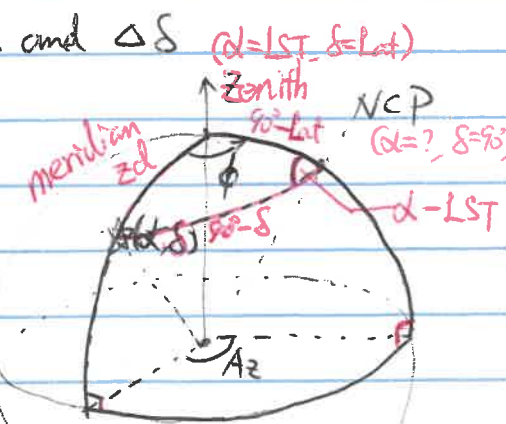 and Δδ (α=LST, δ=Lat)
Z
Zenith
90°-Lat
NCP
(α=?, δ=90°
meridian
zd
φ
α-LST
(α,δ) 90°-δ
Az